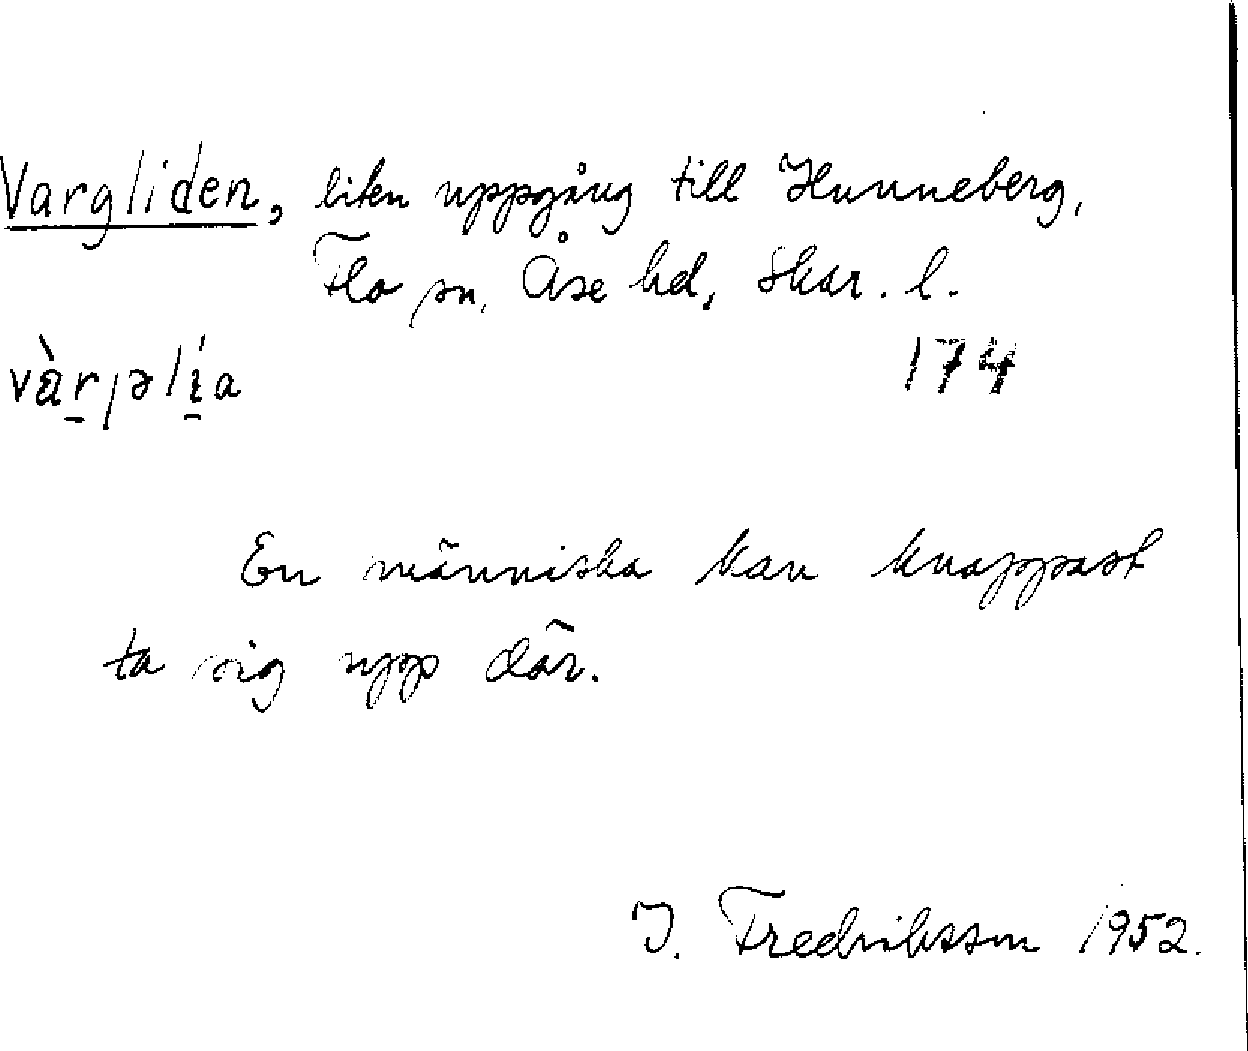 Vargliden, liten uppgång till Hunneberg,
Flo sn, Åse hd, Skar. l.
174
En människa kan knappast
ta sig upp där.
I. Fredriksson 1952.